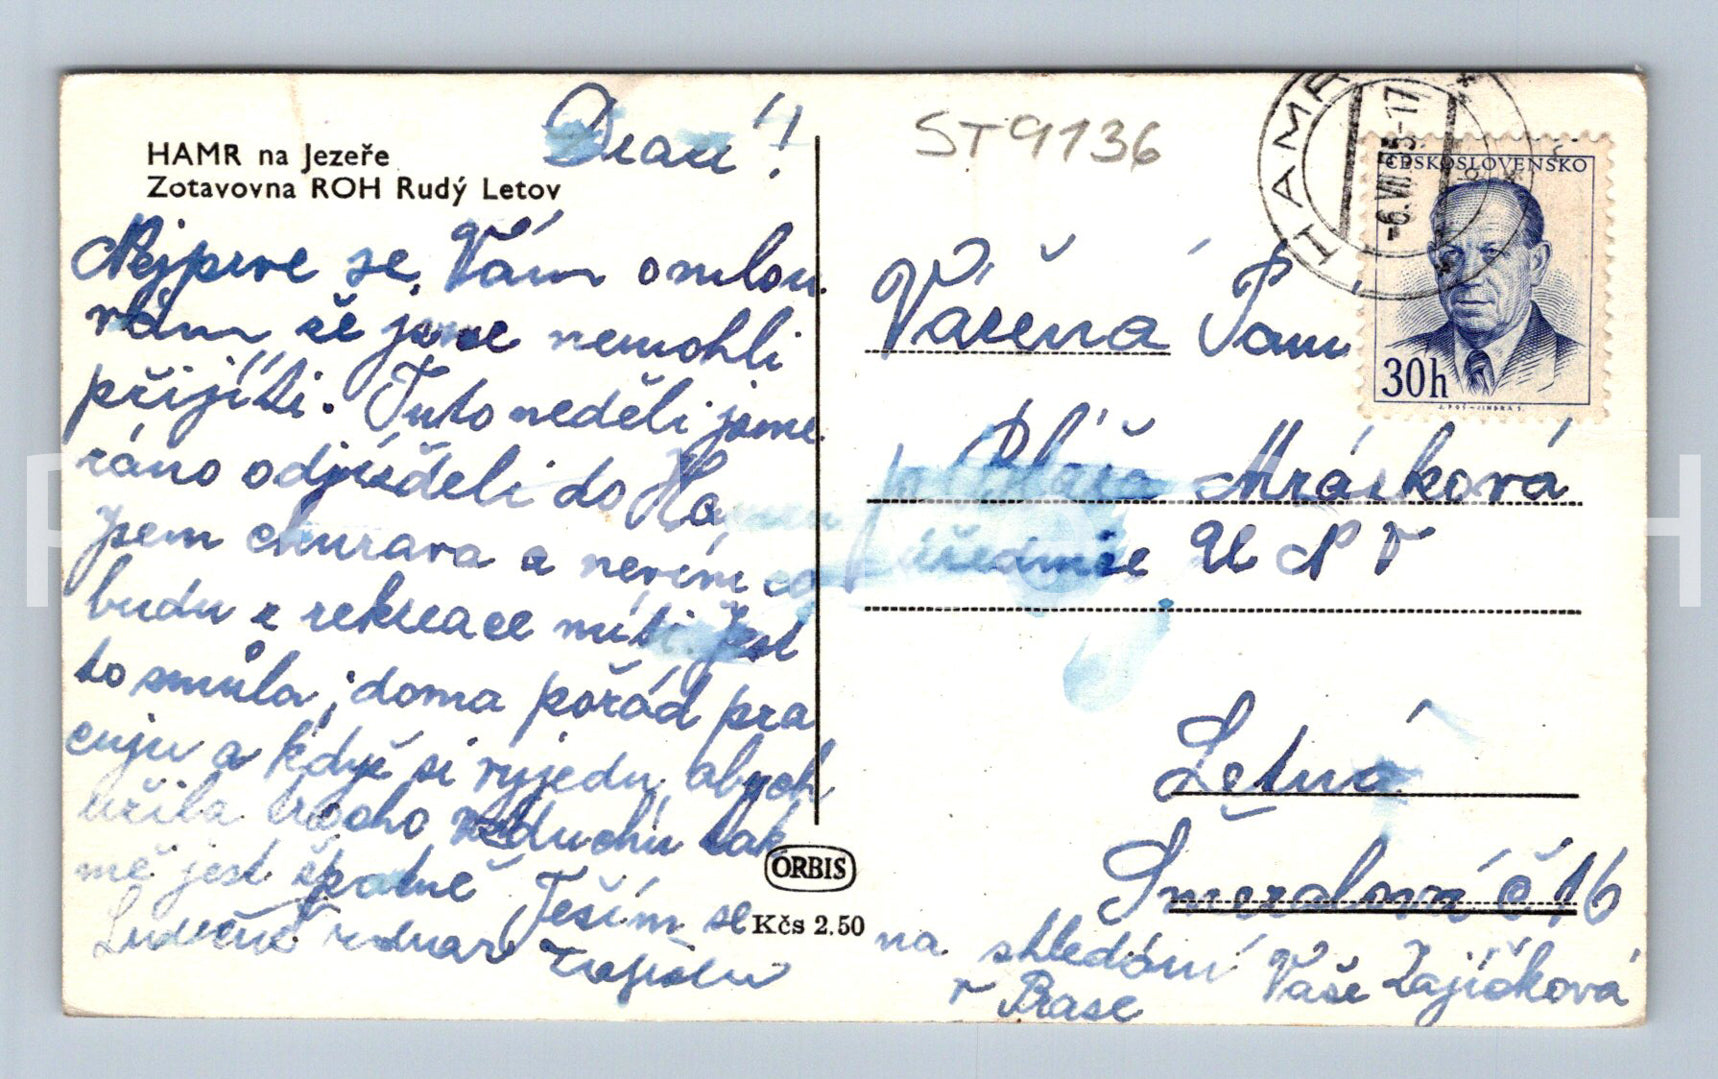 HAMR na Jezeře
Zotavovna ROH Rudý Letov
Drazí!
Nejprve se Vám omlou
vám že jsme nemohli
přijíti. Tuto neděli jsme
ráno odjížděli do
jsem churava a nevím co
budu z rekreace míti. Jest
to smůla, doma pořád pra
cuju a když si vyjedu, abych
užila trocho vzduchu tak
mě jest špatně Těším se
na shledání Vaše Zajíčková
v Praze
ORBIS
Kčs 2.50
ST9136
HAMR
-6.VII.55-17
ČESKOSLOVENSKO
30h
Vážená Paní
Mrázková
úřednice U N V
Letná
Smeralova č 16